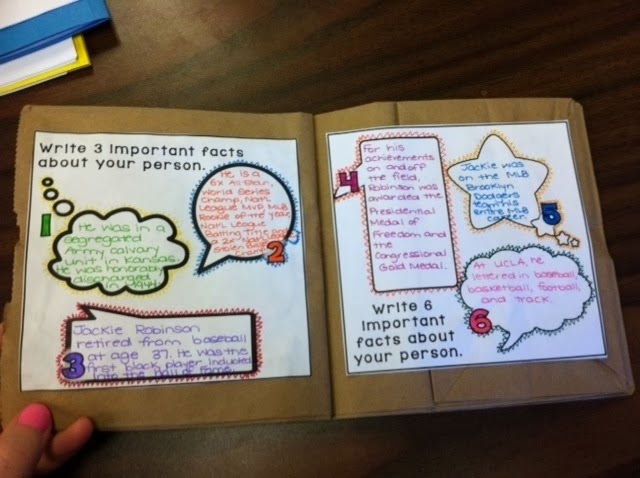 Write 3 Important facts
about your person.
1
He was in a
segregated
Army calvary
unit in Kansas.
He was honorably
discharged
1944
He is a
6x All Star,
World Series
Champ, Nat'l
League MVP, MLB
Rookie of the Year,
Nat'l League
Batting Title and
a 2x Nat'l
stolen base
champ
2
3
Jackie Robinson
retired from baseball
at age 37. He was the
first black player inducted
into the hall of fame.
4
For his
achievements
on and off
the field,
Robinson was
awarded the
Presidential
Medal of
Freedom and
the
Congressional
Gold Medal.
Jackie was
on the MLB
Brooklyn
Dodgers
team his
entire MLB
career.
5
At UCLA, he
lettered in baseball,
basketball, football,
and track.
6
Write 6
Important
facts about
your person.